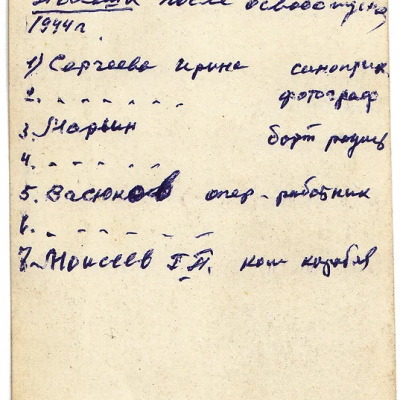 после освобожд
1944 г.
1) Сергеева Ирина саноприк.
2. - - - - - - фотограф
3. Марьин борт радист
4. - - - - - -
5. Васюков опер-работник
6. - - - - - -
7. Моисеев Г.П. ком корабля